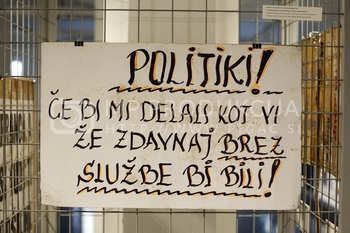 POLITIKI!
ČE BI MI DELALI KOT VI
ŽE ZDAVNAJ BREZ
SLUŽBE BI BILI!